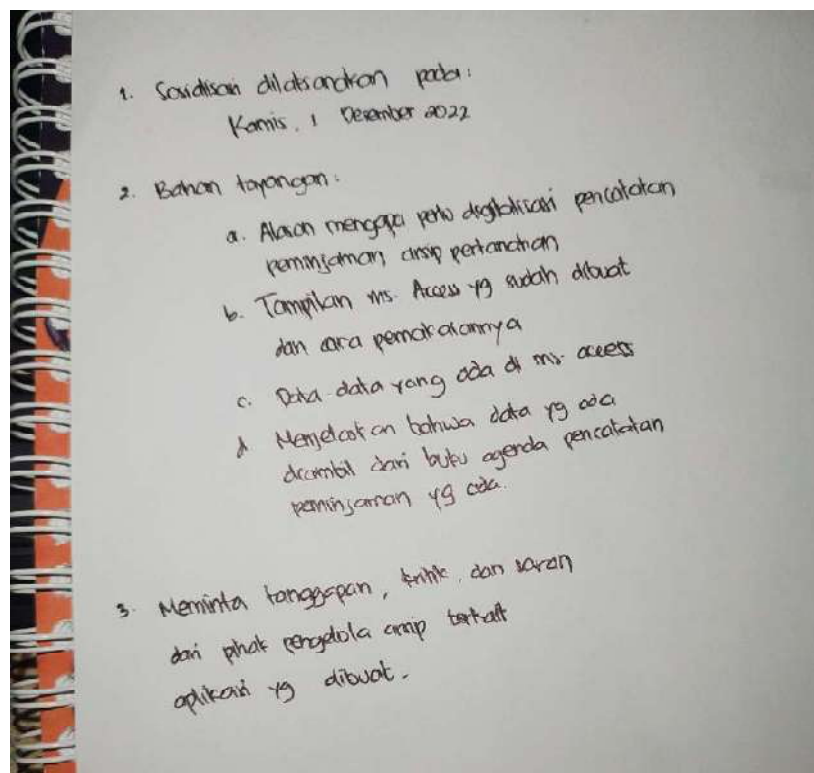 1. Sosialisasi dilaksanakan pada:
Kamis, 1 Desember 2022
2. Bahan tayangan:
a. Alasan mengapa perlu digitalisasi pencatatan
peminjaman arsip pertanahan
b. Tampilan Ms. Access yg sudah dibuat
dan cara pemakaiannya
c. Data-data yang ada di ms. access
d Menjelaskan bahwa data yg ada
diambil dari buku agenda pencatatan
peminjaman yg ada.
3. Meminta tanggapan, kritik, dan saran
dari pihak pengelola arsip terkait
aplikasi yg dibuat.